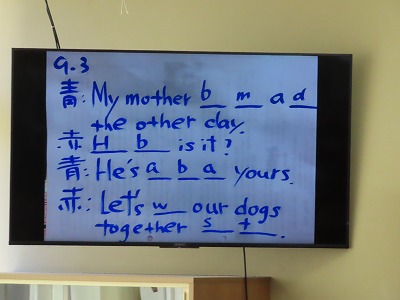 9.3
青: My mother b__ m__ a d__
the other day.
赤: H__ b__ is it?
青: He's a__ b__ a__ yours.
赤: Let's w__ our dogs
together s__ t__.